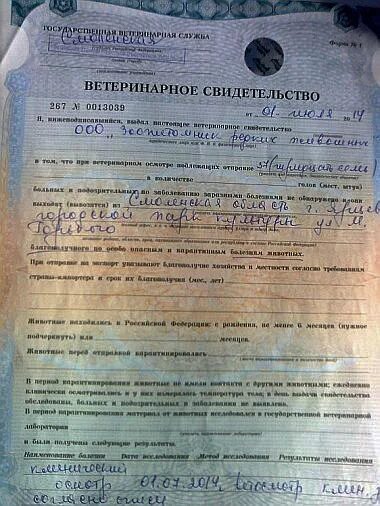 ГОСУДАРСТВЕННАЯ ВЕТЕРИНАРНАЯ СЛУЖБА
Форма № 1
Смоленская
ВЕТЕРИНАРНОЕ СВИДЕТЕЛЬСТВО
267 № 0013039 от " 01 " июля 2014
Я, нижеподписавшийся, выдал настоящее ветеринарное свидетельство
ООО "Зоопитомник редких животных"
в том, что при ветеринарном осмотре подлежащих отправке 37 (тридцать семь)
в количестве голов (мест, штук)
больных и подозрительных по заболеванию заразными болезнями не обнаружено и они
выходят (вывозятся) из Смоленская область г. Ярцево
городской парк культуры ул. М.
Горького
благополучного по особо опасным и карантинным болезням животных.
При отправке на экспорт указывают благополучие хозяйства и местности согласно требованиям
страны-импортера и срок их благополучия (мес., лет)
Животные находились в Российской Федерации: с рождения, не менее 6 месяцев (нужное
подчеркнуть) или месяцев.
Животные перед отправкой карантинировались
В период карантинирования животные не имели контакта с другими животными; ежедневно
клинически осматривались и у них измерялась температура тела; в день выдачи свидетельства
обследованы, больных и подозрительных в заболевании не выявлено.
В период карантинирования материал от животных исследовался в государственной ветеринарной
лаборатории
и были получены следующие результаты.
Наименование болезни Дата исследования Метод исследования Результаты исследования
клинический
осмотр 01.07.2014, клин.
согласно описи